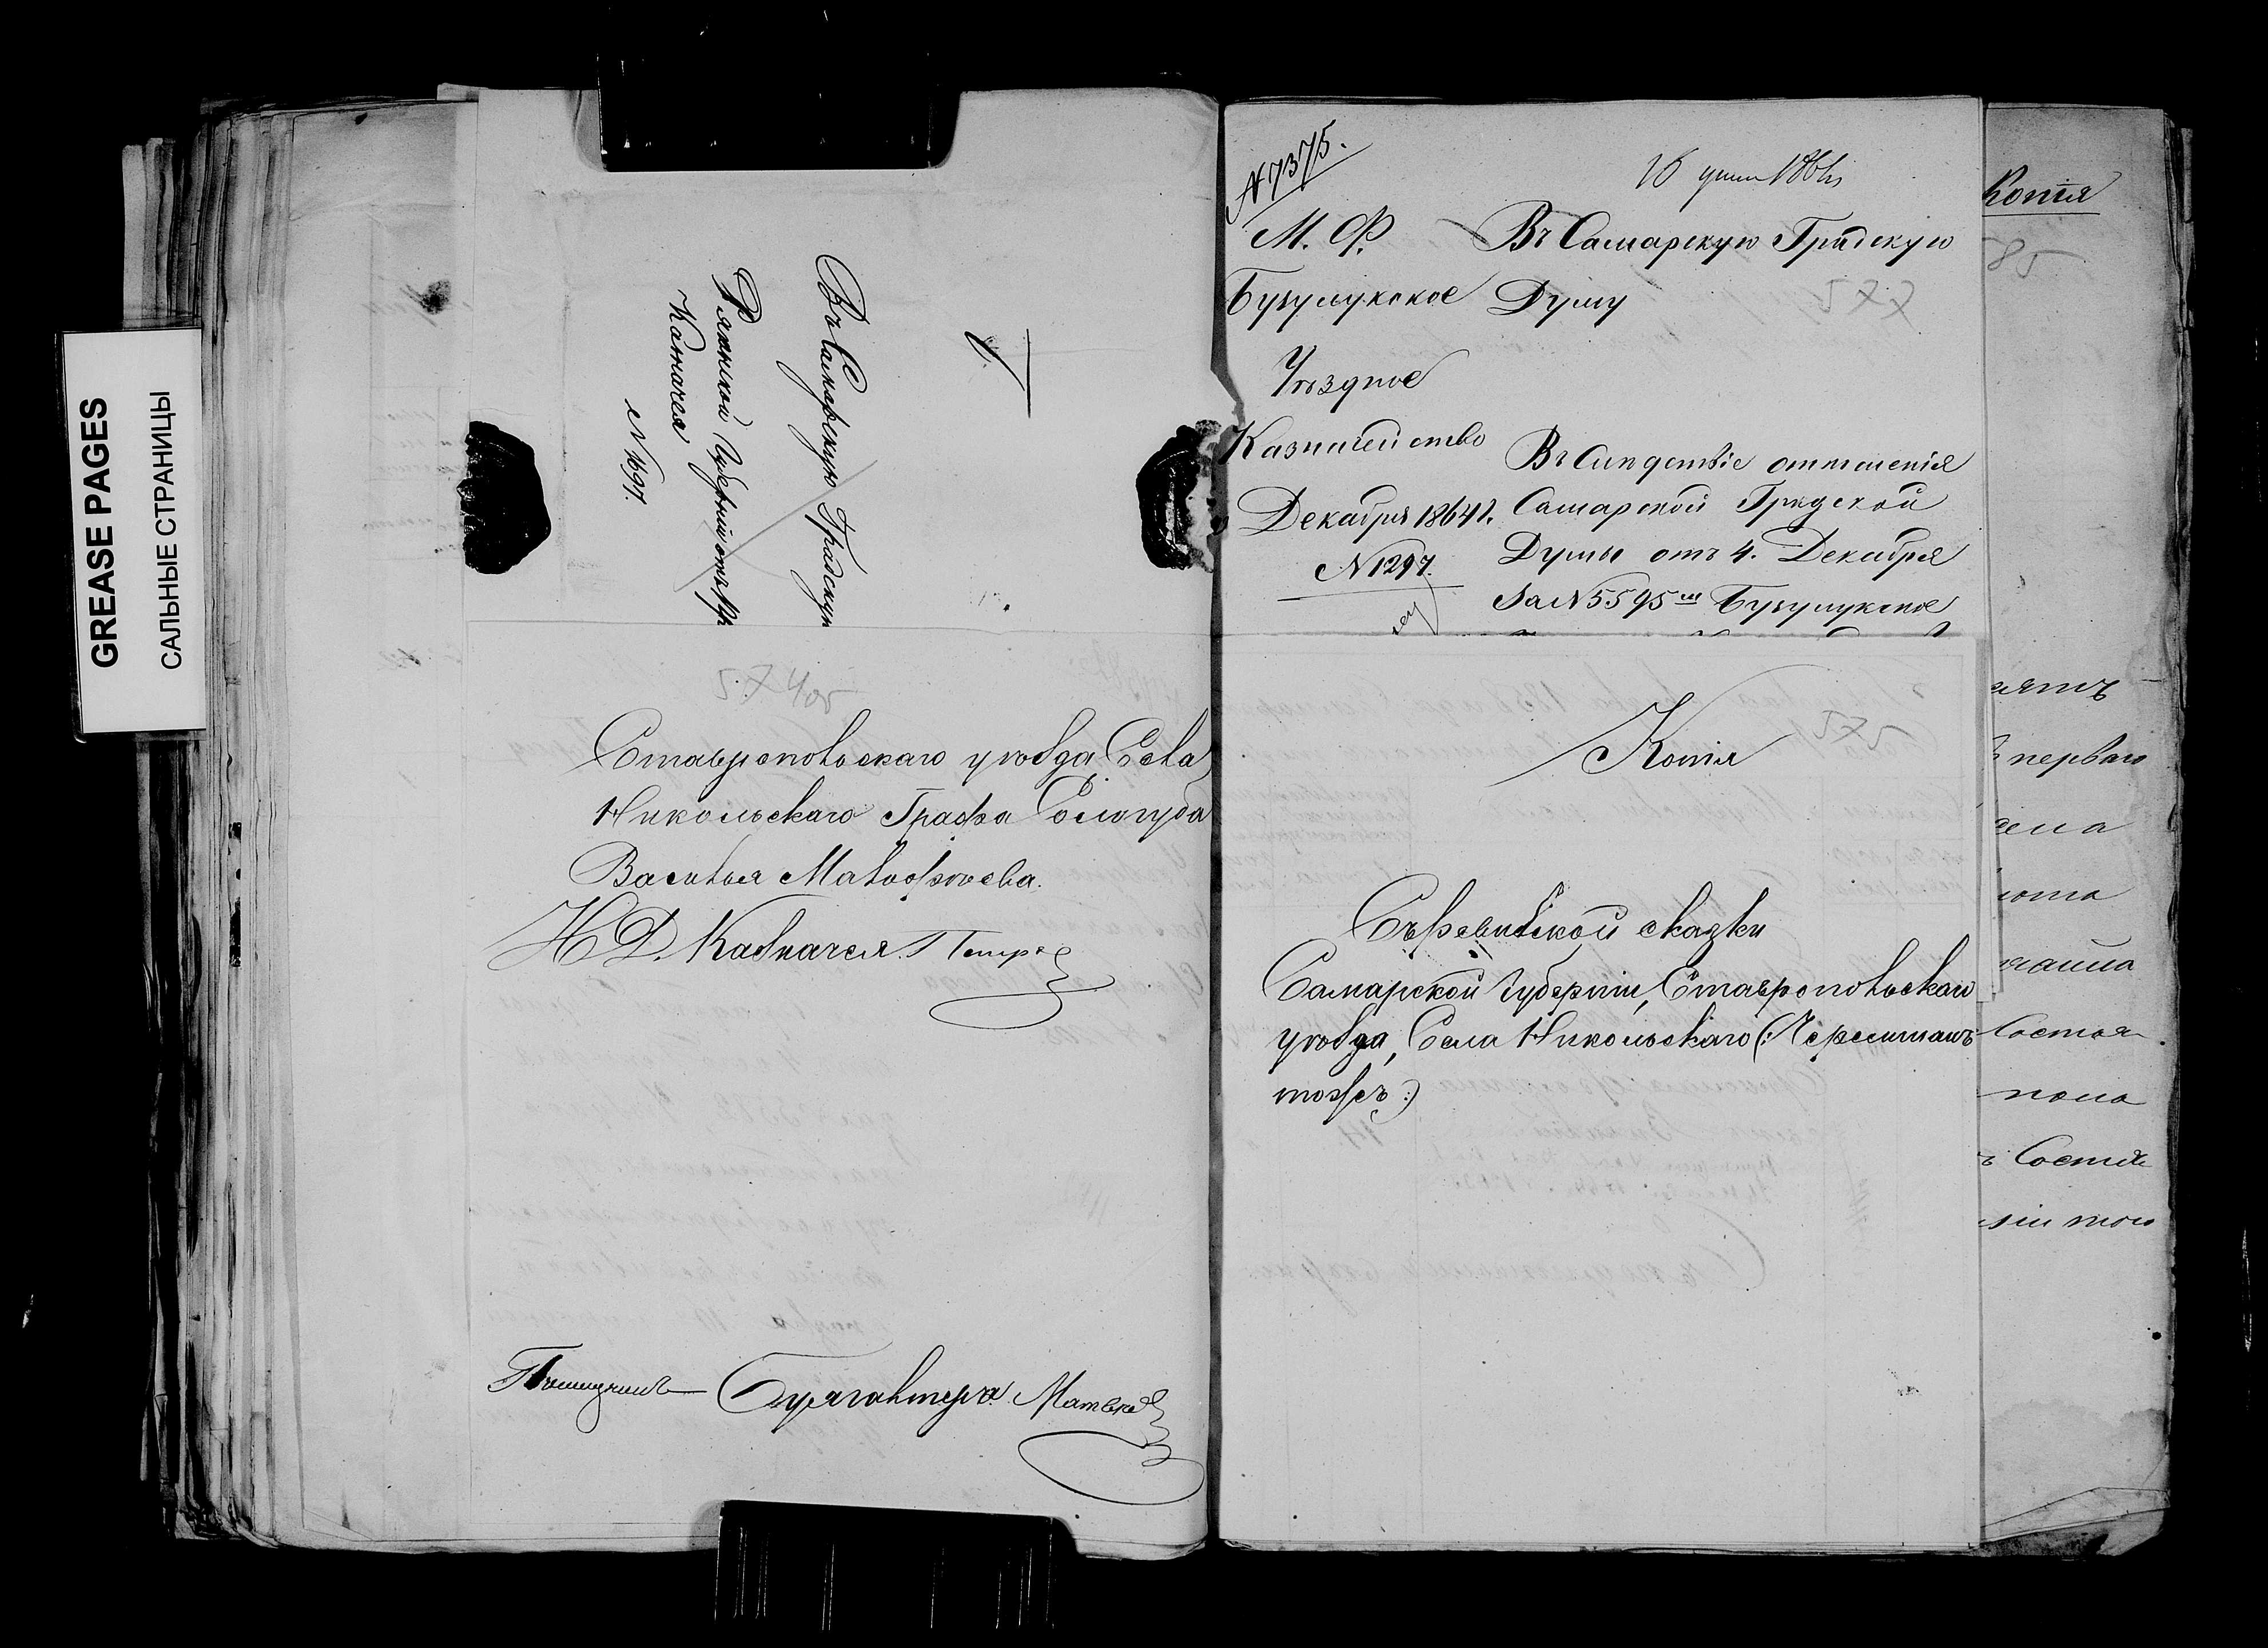 GREASE PAGES
САЛЬНЫЕ СТРАНИЦЫ
Въ Самарскую Градскую
Губерніи отъ
Казначея
№ 1697.
574 об
Ставропольскаго уѣзда, Села
Никольскаго Графа Сологуба
Василья Малофѣева.
И. Д. Казначея
Бухгалтера Матвѣев
№ 7375.
М. Ф.
Бузулукское
Уѣздное
Казначейство
Декабря 1864 г.
№ 1297.
Въ Самарскую Градскую
Думу
577
Въ Слѣдствіе отношенія
Самарской Градской
Думы отъ 4. Декабря
За № 5595 Бузулукское
575
Копія
Съ Ревизской сказки
Самарской Губерніи, Ставропольскаго
уѣзда, Села Никольскаго (: Черемшанъ
тожъ :)
Копія
85
перваго
Состоя
пола
Состоя
того